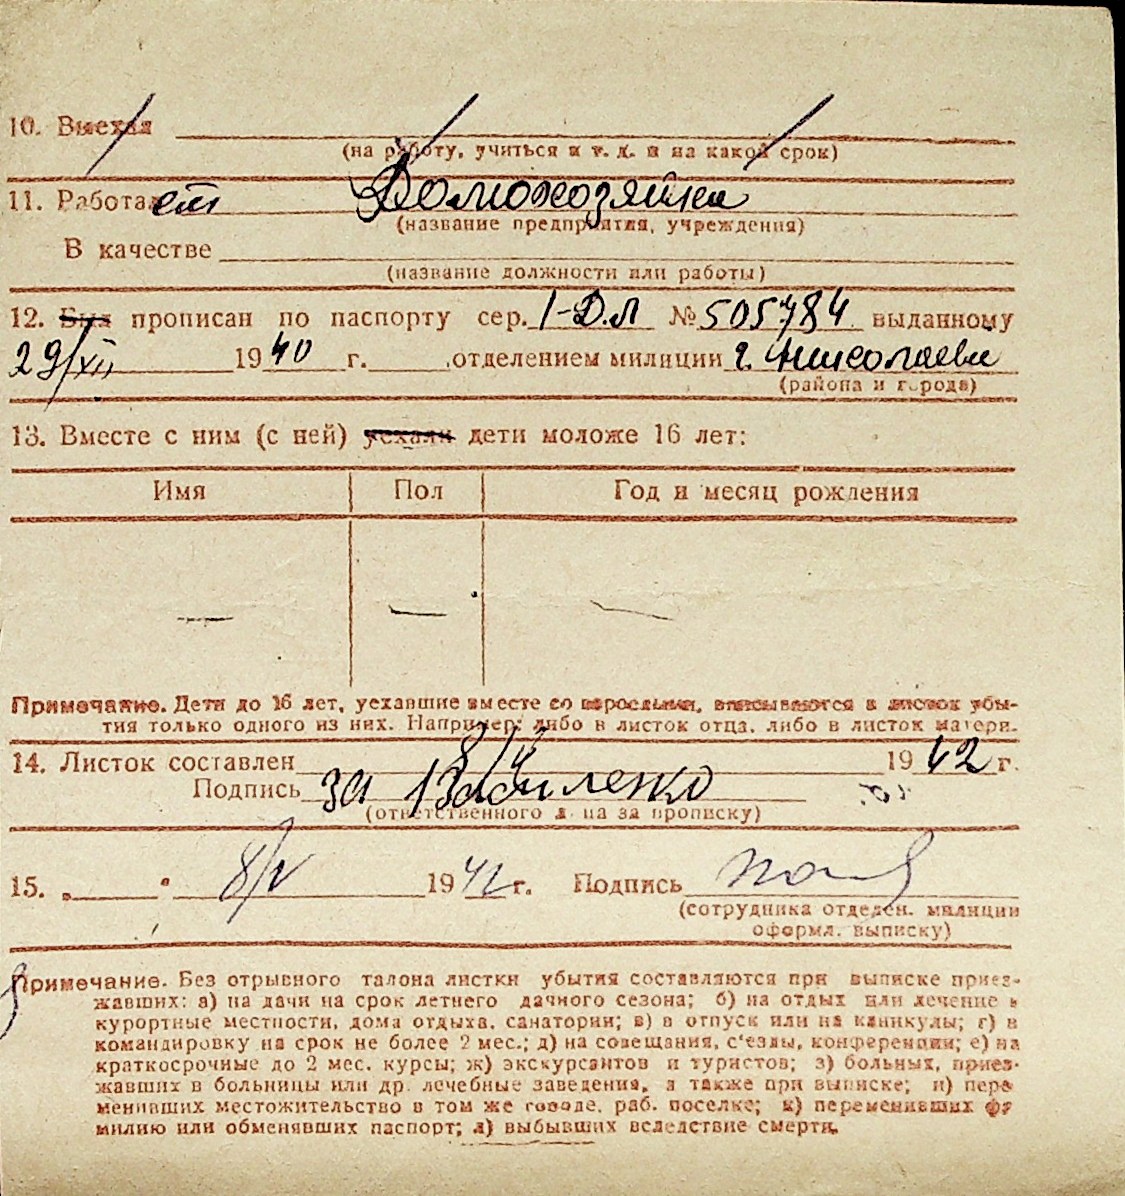 10. Выехал
(на работу, учиться и т. д. и на какой срок)
11. Работает Домохозяйка
(название предприятия, учреждения)
В качестве
(название должности или работы)
12. Был прописан по паспорту сер. I-Д.Л № 505784 выданному
29/XII 1940 г. отделением милиции г. Николаева
(района и города)
13. Вместе с ним (с ней) уехали дети моложе 16 лет:
Имя Пол Год и месяц рождения
— — —
Примечание. Дети до 16 лет, уехавшие вместе со взрослыми, вписываются в листок убы-
тия только одного из них. Например: либо в листок отца, либо в листок матери.
14. Листок составлен 8/V 1942 г.
Подпись за
(ответственного л-ца за прописку)
15. „ " 8/V 1942 г. Подпись
(сотрудника отделен. милиции
оформл. выписку)
Примечание. Без отрывного талона листки убытия составляются при выписке приез-
жавших: а) на дачи на срок летнего дачного сезона; б) на отдых или лечение в
курортные местности, дома отдыха, санатории; в) в отпуск или на каникулы; г) в
командировку на срок не более 2 мес.; д) на совещания, с'езды, конференции; е) на
краткосрочные до 2 мес. курсы; ж) экскурсантов и туристов; з) больных, приез-
жавших в больницы или др. лечебные заведения, а также при выписке; и) пере
менивших местожительство в том же городе, раб. поселке; к) переменивших фа
милию или обменявших паспорт; л) выбывших вследствие смерти.